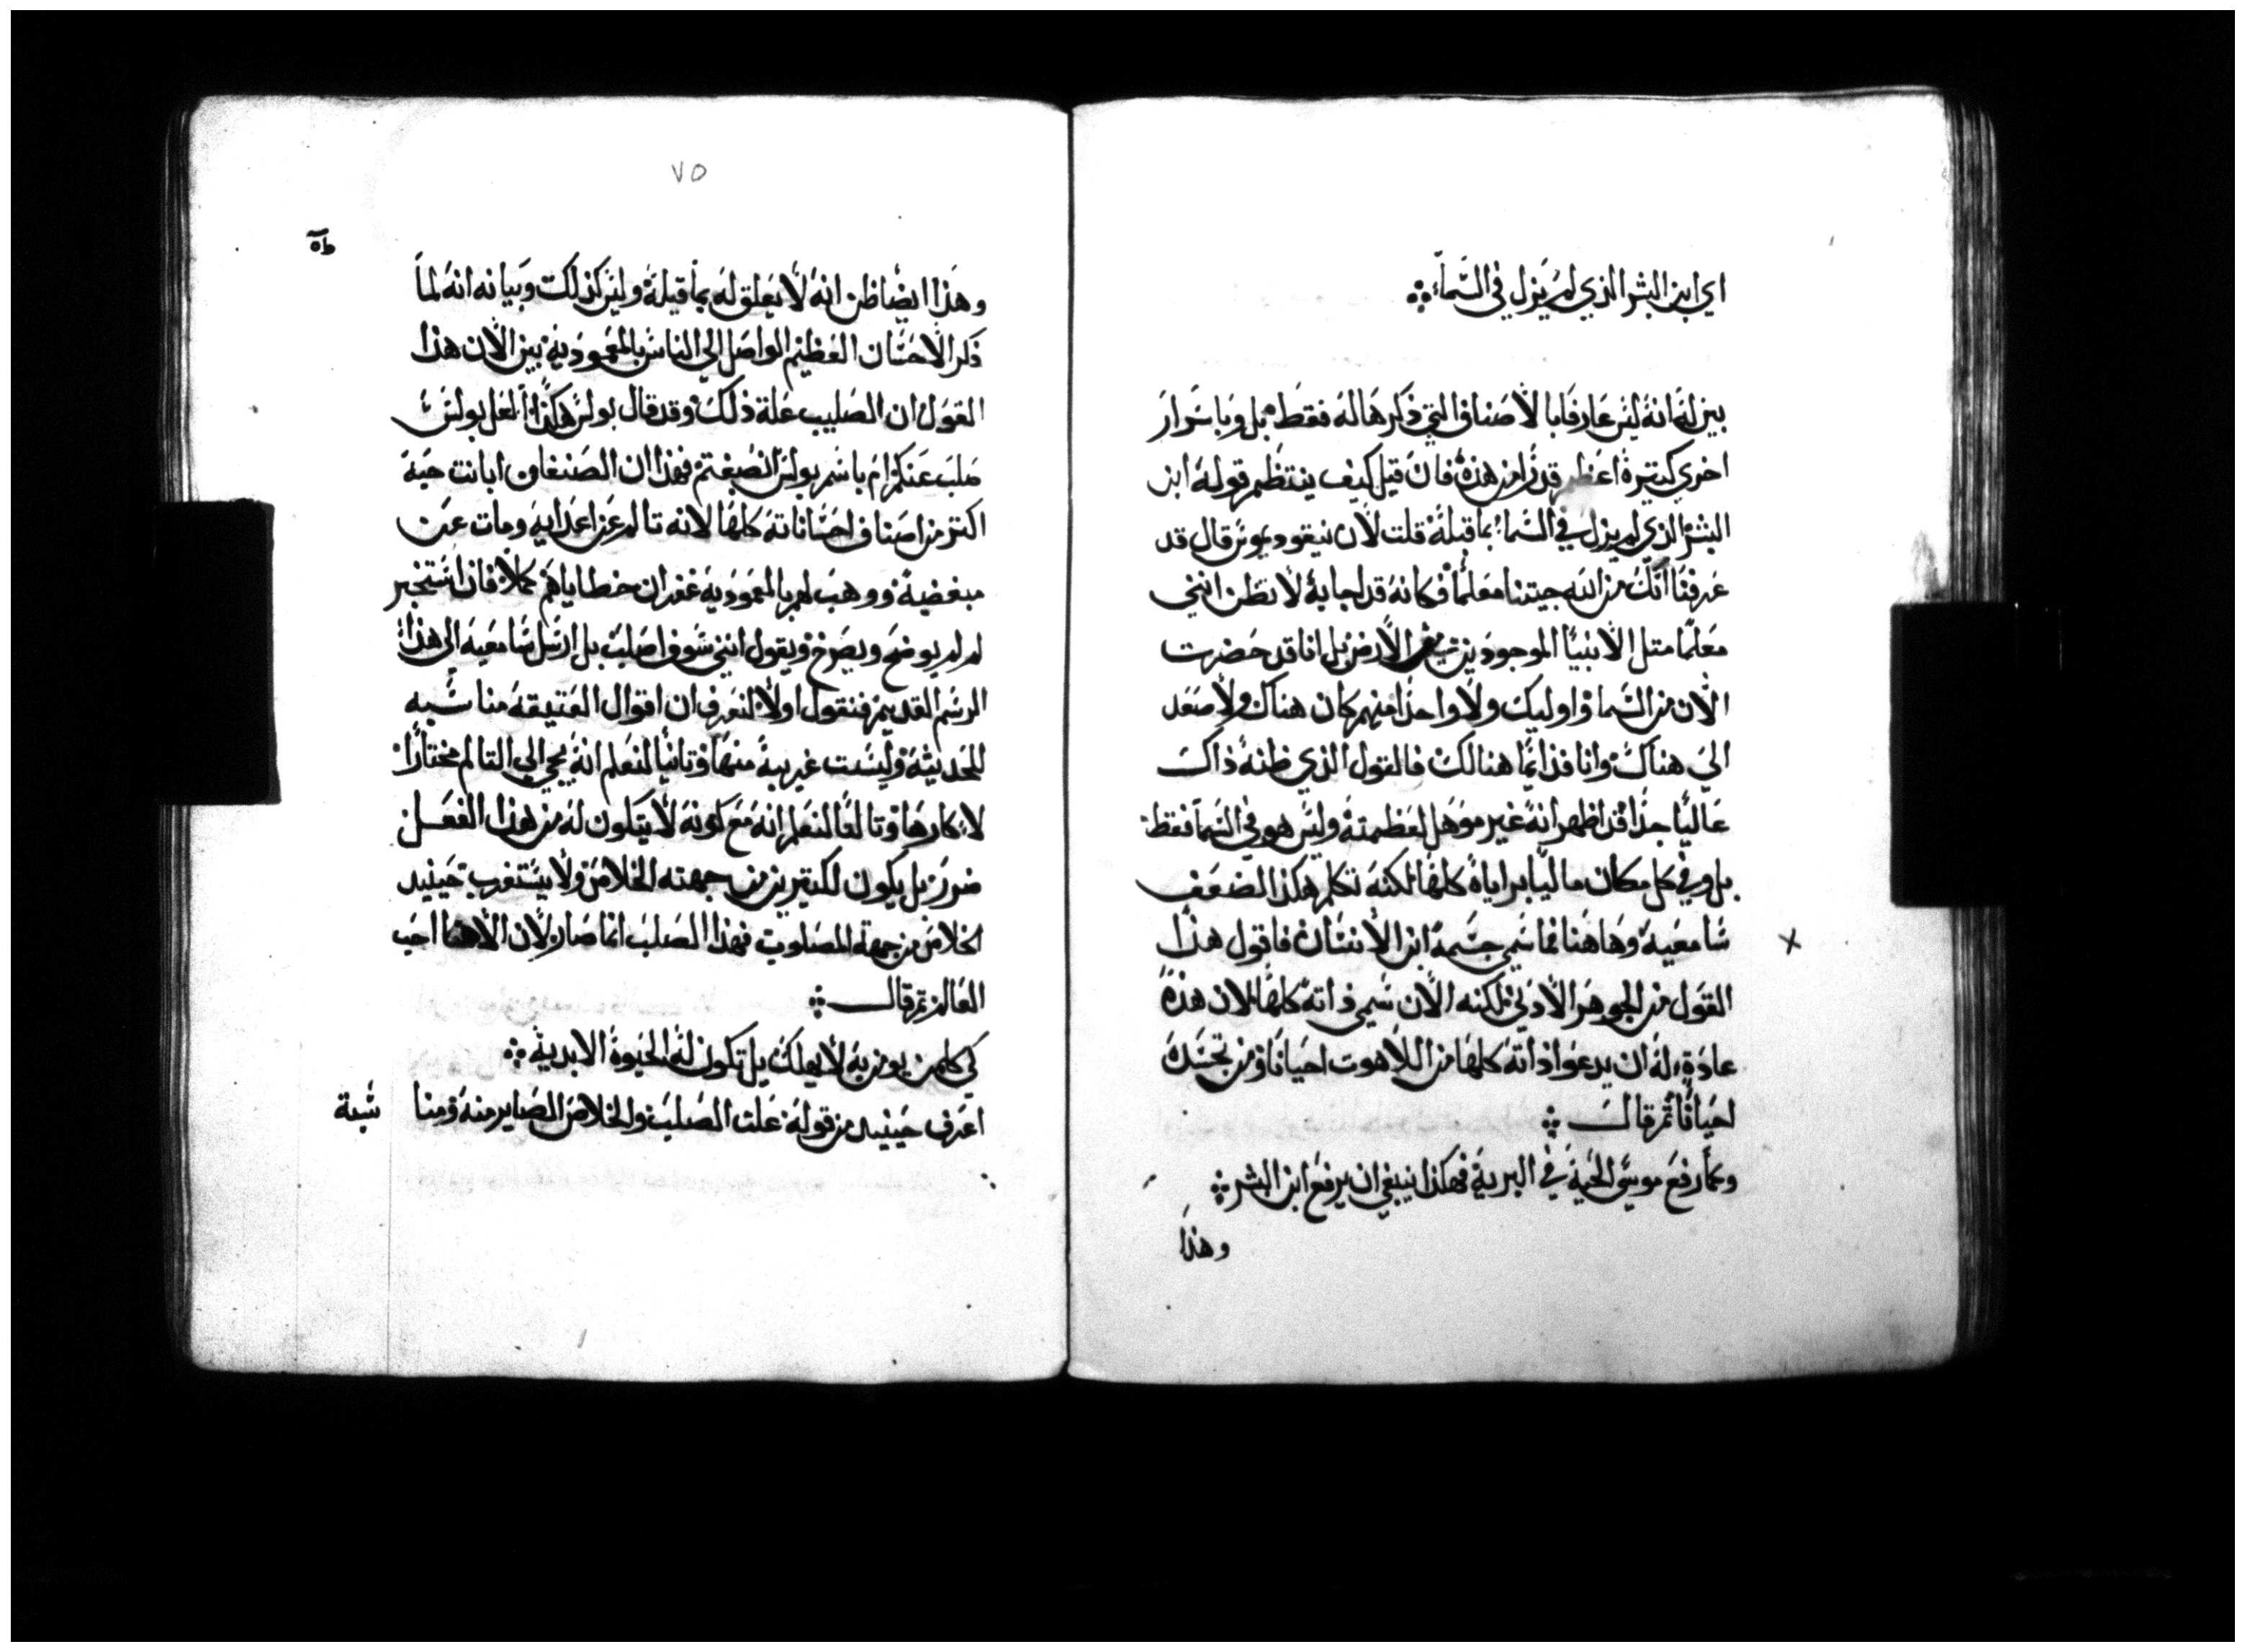 اي ابن البشر الذي لم يزل في السماء
بين له انه ليس عارفا بالاصناف التي ذكرها له فقط بل وباسرار
اخري كتيرة اعظم قدرا من هذه فان قيل كيف ينتظم قوله ابن
البشر الذي لم يزل في السماء بما قبله قلت لان نيقوديموس قال قد
عرفنا انك من الله جيتنا معلما فكانه قد اجابه لا تظن انني
معلما متل الانبيا الموجودين في الارض بل انا قد حضرت
الان من السما واوليك ولا واحدا منهم كان هناك ولا صعد
الي هناك وانا فدايما هنالك فالقول الذي ظنه ذاك
عاليا جدا قد اظهر انه غير موهل لعظمته وليس هو في السما فقط
بل وفي كل مكان ماليا براياه كلها لكنه تكلم هكذا لضعف
سامعيه وهاهنا فما سمي جسمه ابن الانسان فاقول هذا
القول من الجوهر الادني لكنه الان سمي ذاته كلها لان هذه
عادة له ان يدعوا ذاته كلها من اللاهوت احيانا ومن تجسده
احيانا ثم قال
وكما رفع موسي الحية في البرية فهكذا ينبغي ان يرفع ابن البشر
وهذا
٧٥
وهذا ايضا ظن انه لا تعلق له بما قبله وليس كذلك وبيانه انه لما
ذكر الاحسان العظيم الواصل الي الناس بالمعمودية بين الان هذا
القول ان الصليب علة ذلك وقد قال بولس هكذا العل بولس
صلب عنكم ام باسم بولس انصبغتم فهذا ان الصنفان ابانت حبة
اكتر من اصناف احساناته كلها لانه تالم عن اعدايه ومات عن
مبغضيه ووهب لهم بالمعمودية غفران خطاياهم كملا فان استخبر
لم لم يوضح ويصرخ ويقول انني سوف اصلب بل ارسل سامعيه الي هذا
الرسم القديم فنقول اولا لنعرف ان اقوال العتيقة مناسبه
للحديثة وليست غريبة منها وتانيا لنعلم انه يجي الي التالم مختارا
لا كارها وتالتا لنعلم انه مع كونه لا يتكون له من هذا الفعل
ضررن بل يكون لكتيرين من جهته الخلاص ولا يستغرب حينيد
الخلاص من جهة المصلوب فهذا الصلب انما صار لان الاهنا احب
العالم ثم قال
كي كلمن يومن به لا يهلك بل تكون له الحيوة الابدية
اعرف حينيد من قوله علت الصلب والخلاص الصاير منه ومنا
شبة